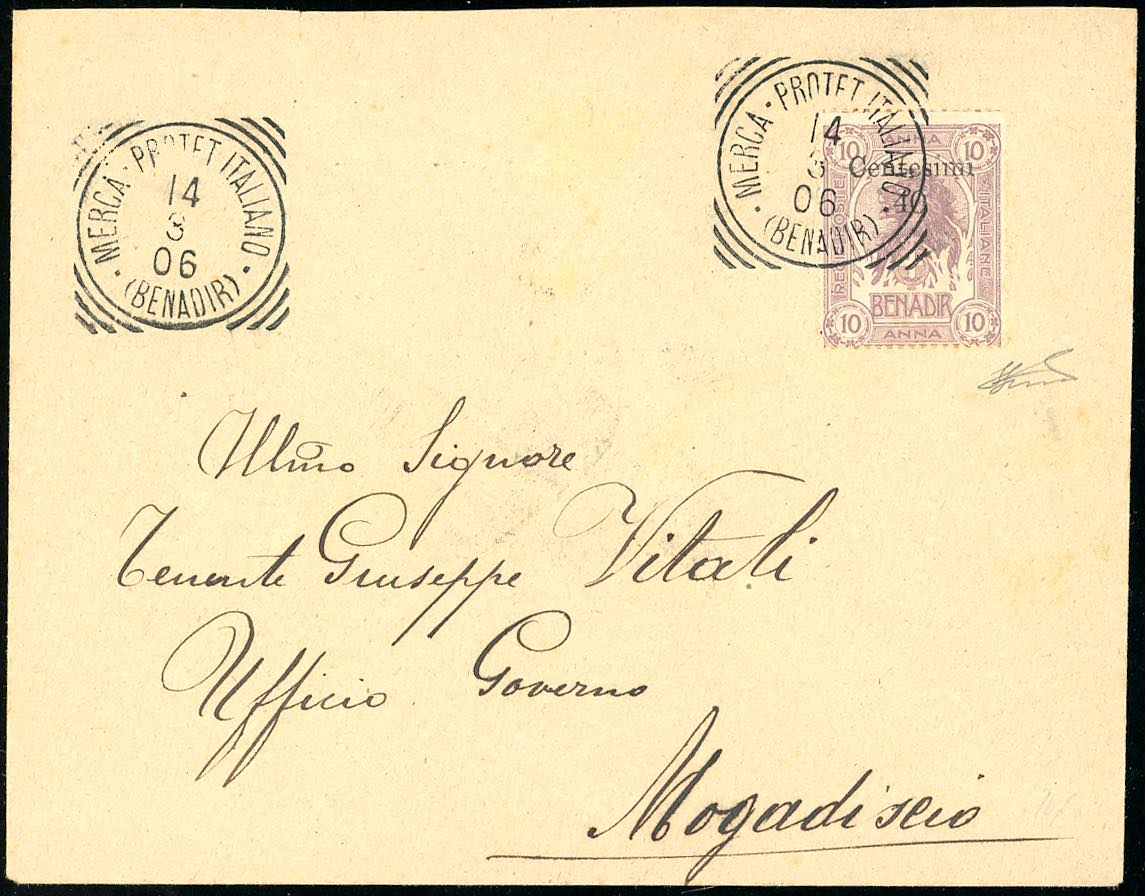 MERCA · PROTET ITALIANO ·
14
3
06
(BENADIR)
MERCA · PROTET ITALIANO ·
14
3
06
(BENADIR)
10 ANNA 10
Centesimi
40
RE POSTE
ITALIANE
BENADIR
10 ANNA 10
Illmo Signore
Tenente Giuseppe Vitali
Ufficio Governo
Mogadiscio